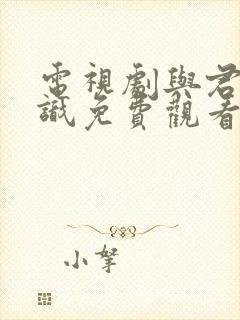 電視劇與君
識免費觀看
小拏